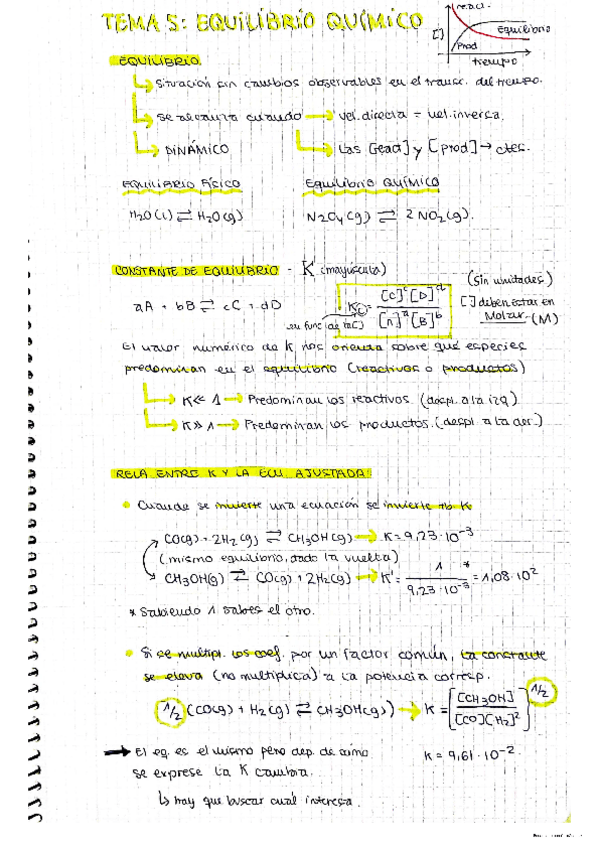 TEMA 5: EQUILIBRIO QUÍMICO
react.
[ ]
Equilibrio
Prod
tiempo
EQUILIBRIO.
↳ Situación sin cambios observables en el transc. del tiempo.
↳ Se alcanza cuando → vel. directa = vel. inversa.
↳ DINÁMICO
↳ Las [react] y [prod] → ctes.
EQUILIBRIO FÍSICO
Equilibrio QUÍMICO
H2O(l) ⇌ H2O(g)
N2O4(g) ⇌ 2 NO2(g).
CONSTANTE DE EQUILIBRIO - K (mayúscula)
(sin unidades)
aA + bB ⇌ cC + dD
Kc = [C]^c [D]^d / [A]^a [B]^b
[ ] deben estar en
Molar - (M)
en func. de la [ ]
El valor numérico de K nos orienta sobre qué especies
predominan en el equilibrio (reactivos o productos)
↳ K << 1 → Predominan los reactivos (despl. a la izq)
↳ K >> 1 → Predominan los productos. (despl. a la der.)
RELA ENTRE K Y LA ECU. AJUSTADA:
• Cuando se invierte una ecuación se invierte tb K
CO(g) + 2H2(g) ⇌ CH3OH(g) → K = 9,23·10^-3
(mismo equilibrio, dado la vuelta)
CH3OH(g) ⇌ CO(g) + 2H2(g) → K' = 1 / 9,23·10^-3 * = 1,08·10^2
* Sabiendo 1 sabes el otro.
• Si se multipl. los coef. por un factor común, la constante
se eleva (no multiplica) a la potencia corresp.
1/2 (CO(g) + H2(g) ⇌ CH3OH(g)) → K = [[CH3OH] / [CO][H2]^2]^1/2
→ El eq. es el mismo pero dep. de cómo
K = 9,61·10^-2.
se exprese la K cambia.
↳ hay que buscar cual interesa.